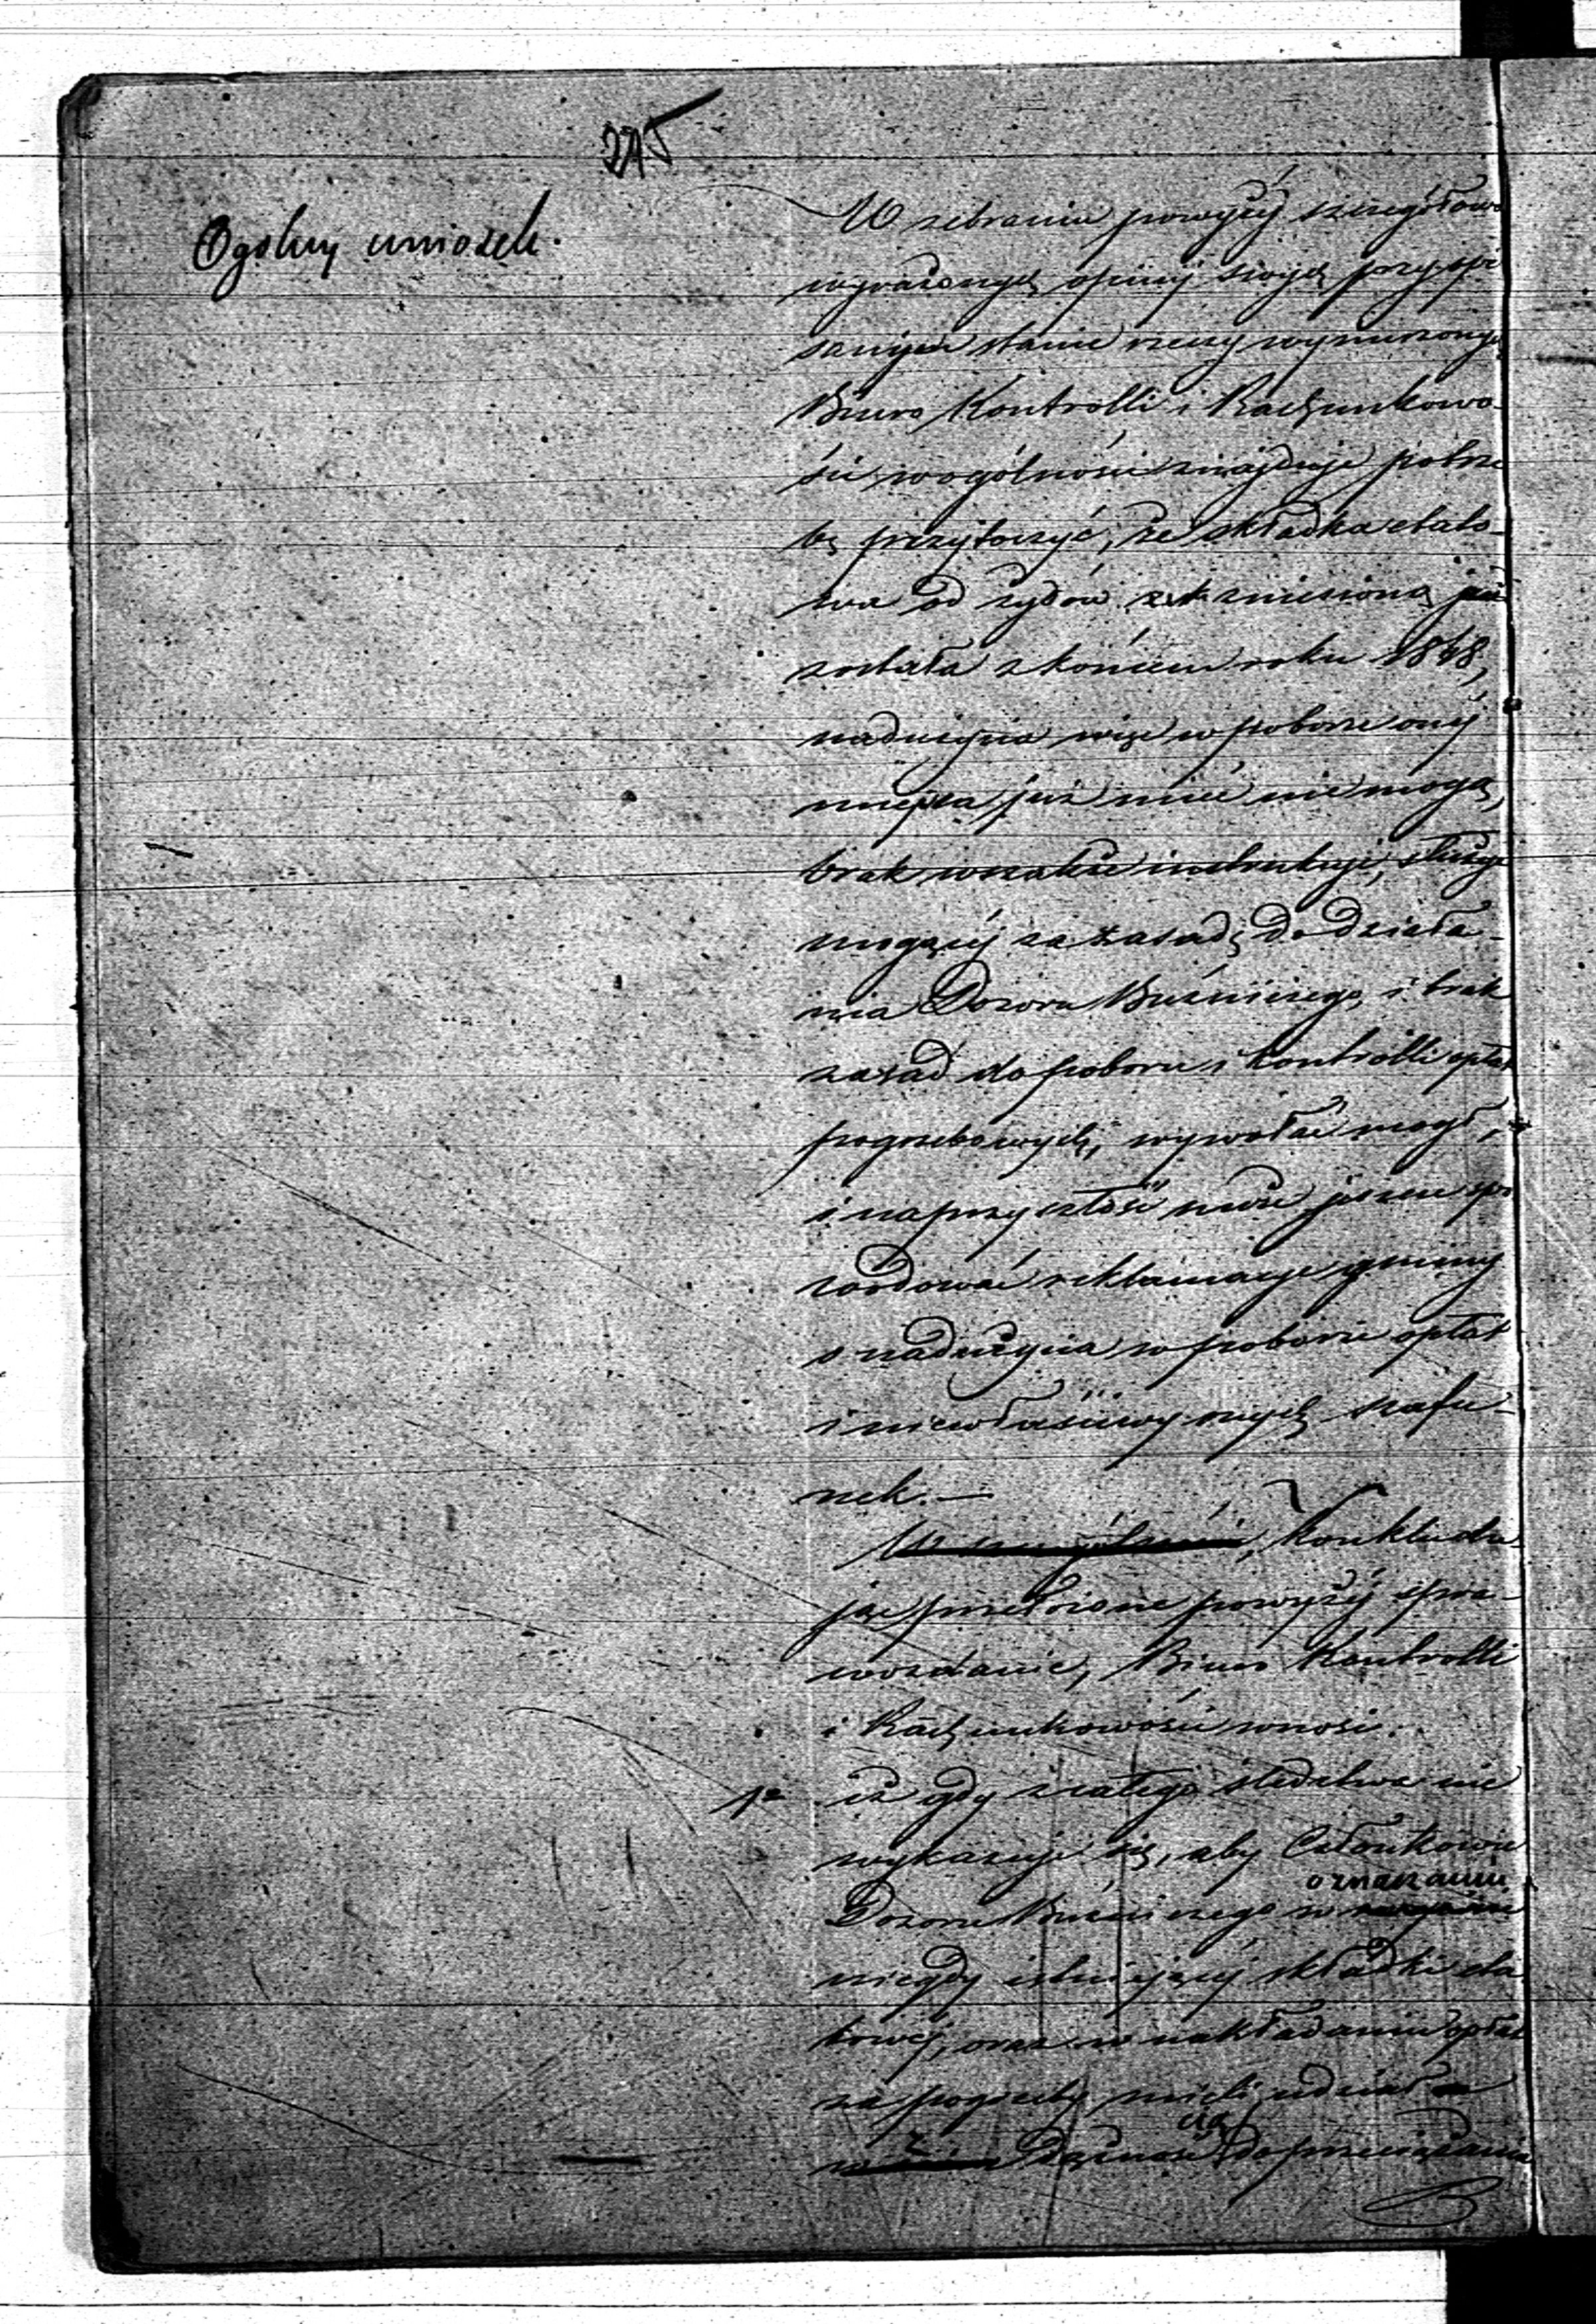 245
Ogólny wniosek.
W zebraniu powyżéj szczegółowo
wyrażonych opinij swych przy opi
sanym stanie rzeczy wymienionych
Biuro Kontrolli i Rachunkowo
ści wogólności znajduje potrze
bę przytoczyć, że składka etato-
wa od żydów zniesioną już
została z końcem roku 1848,
nadużycia więc w poborze onéj
miejsca już mieć nie mogą,
brak wszakże instrukcji, służyć
mogącéj za zasadę do działa-
nia Dozoru Bużniczego, i brak
zasad do poboru i kontrolli opłat
pogrzebowych, wywołać mógł,
i na przyszłość może jeszcze spo
wodować reklamacye gminy
o nadużycia w poborze opłat
i niewłaściwy onych szafu-
nek. —
W szczególności, Konkludu-
jąc przełożone powyżéj spra-
wozdanie, Biuro Kontrolli
i Rachunkowości wnosi:
1º iż gdy z całego śledztwa nie
wykazuje się, aby Członkowie
oznaczaniu
Dozoru Bużniczego w
niegdy istniejącéj składki eta
towéj, oraz w nakładaniu opłat
za pogrzeby mieli udział
dążność do przeciążania